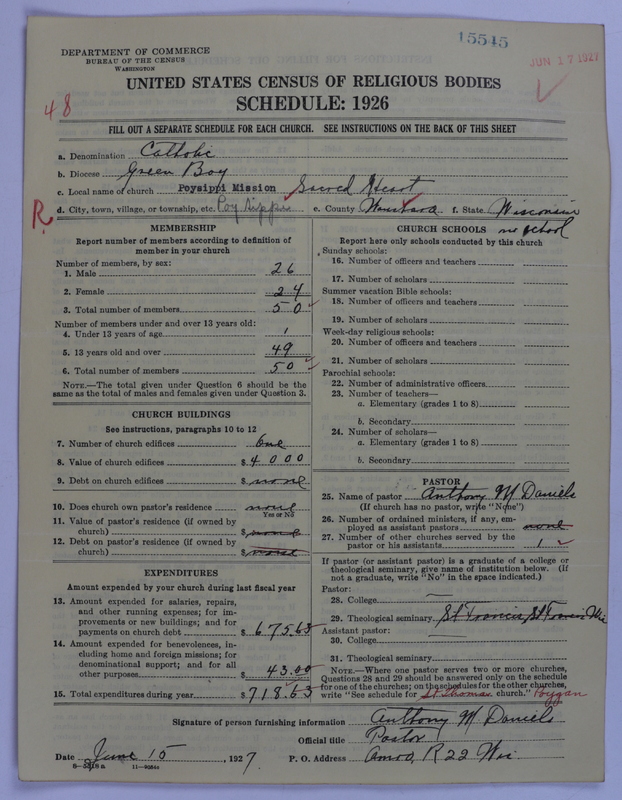 15545
JUN 17 1927
DEPARTMENT OF COMMERCE
BUREAU OF THE CENSUS
WASHINGTON
UNITED STATES CENSUS OF RELIGIOUS BODIES
SCHEDULE: 1926
48
FILL OUT A SEPARATE SCHEDULE FOR EACH CHURCH. SEE INSTRUCTIONS ON THE BACK OF THIS SHEET
a. Denomination Catholic
b. Diocese Green Bay
c. Local name of church Poysippi Mission Sacred Heart
R d. City, town, village, or township, etc. Poy Sippi e. County Waushara f. State Wisconsin
MEMBERSHIP
Report number of members according to definition of
member in your church
Number of members, by sex:
1. Male 26
2. Female 24
3. Total number of members 50
Number of members under and over 13 years old:
4. Under 13 years of age 1
5. 13 years old and over 49
6. Total number of members 50
NOTE.—The total given under Question 6 should be
same as the total of males and females given under Question 3.
CHURCH BUILDINGS
See instructions, paragraphs 10 to 12
7. Number of church edifices One
8. Value of church edifices $4000
9. Debt on church edifices $ none
10. Does church own pastor's residence none
Yes or No
11. Value of pastor's residence (if owned by
church) $ none
12. Debt on pastor's residence (if owned by
church) $ none
EXPENDITURES
Amount expended by your church during last fiscal year
13. Amount expended for salaries, repairs,
and other running expenses; for im-
provements or new buildings; and for
payments on church debt $675.65
14. Amount expended for benevolences, in-
cluding home and foreign missions; for
denominational support; and for all
other purposes $43.00
15. Total expenditures during year $718.65
CHURCH SCHOOLS no school
Report here only schools conducted by this church
Sunday schools:
16. Number of officers and teachers
17. Number of scholars
Summer vacation Bible schools:
18. Number of officers and teachers
19. Number of scholars
Week-day religious schools:
20. Number of officers and teachers
21. Number of scholars
Parochial schools:
22. Number of administrative officers
23. Number of teachers—
a. Elementary (grades 1 to 8)
b. Secondary
24. Number of scholars—
a. Elementary (grades 1 to 8)
b. Secondary
PASTOR
25. Name of pastor Anthony M Daniels
(If church has no pastor, write "None")
26. Number of ordained ministers, if any, em-
ployed as assistant pastors none
27. Number of other churches served by the
pastor or his assistants 1
If pastor (or assistant pastor) is a graduate of a college or
theological seminary, give name of institution below. (If
not a graduate, write "No" in the space indicated.)
Pastor:
28. College
29. Theological seminary St Francis, St Francis Wis
Assistant pastor:
30. College
31. Theological seminary
NOTE.—Where one pastor serves two or more churches,
Questions 28 and 29 should be answered only on the schedule
for one of the churches; on the schedules for the other churches,
write "See schedule for St Thomas church." Poygan
Signature of person furnishing information Anthony M Daniels
Official title Pastor
Date June 15, 1927 P. O. Address Omro, R 22 Wis